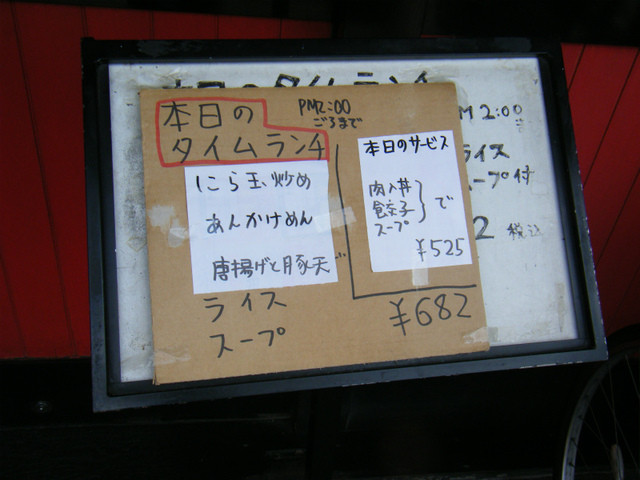 本日の
タイムランチ
PM2:00
ごろまで
にら玉炒め
あんかけめん
唐揚げと豚天
ライス
スープ
本日のサービス
肉入丼
餃子
スープ
で
¥525
¥682
本日のタイムランチ
M 2:00
ライス
スープ付
2 税込